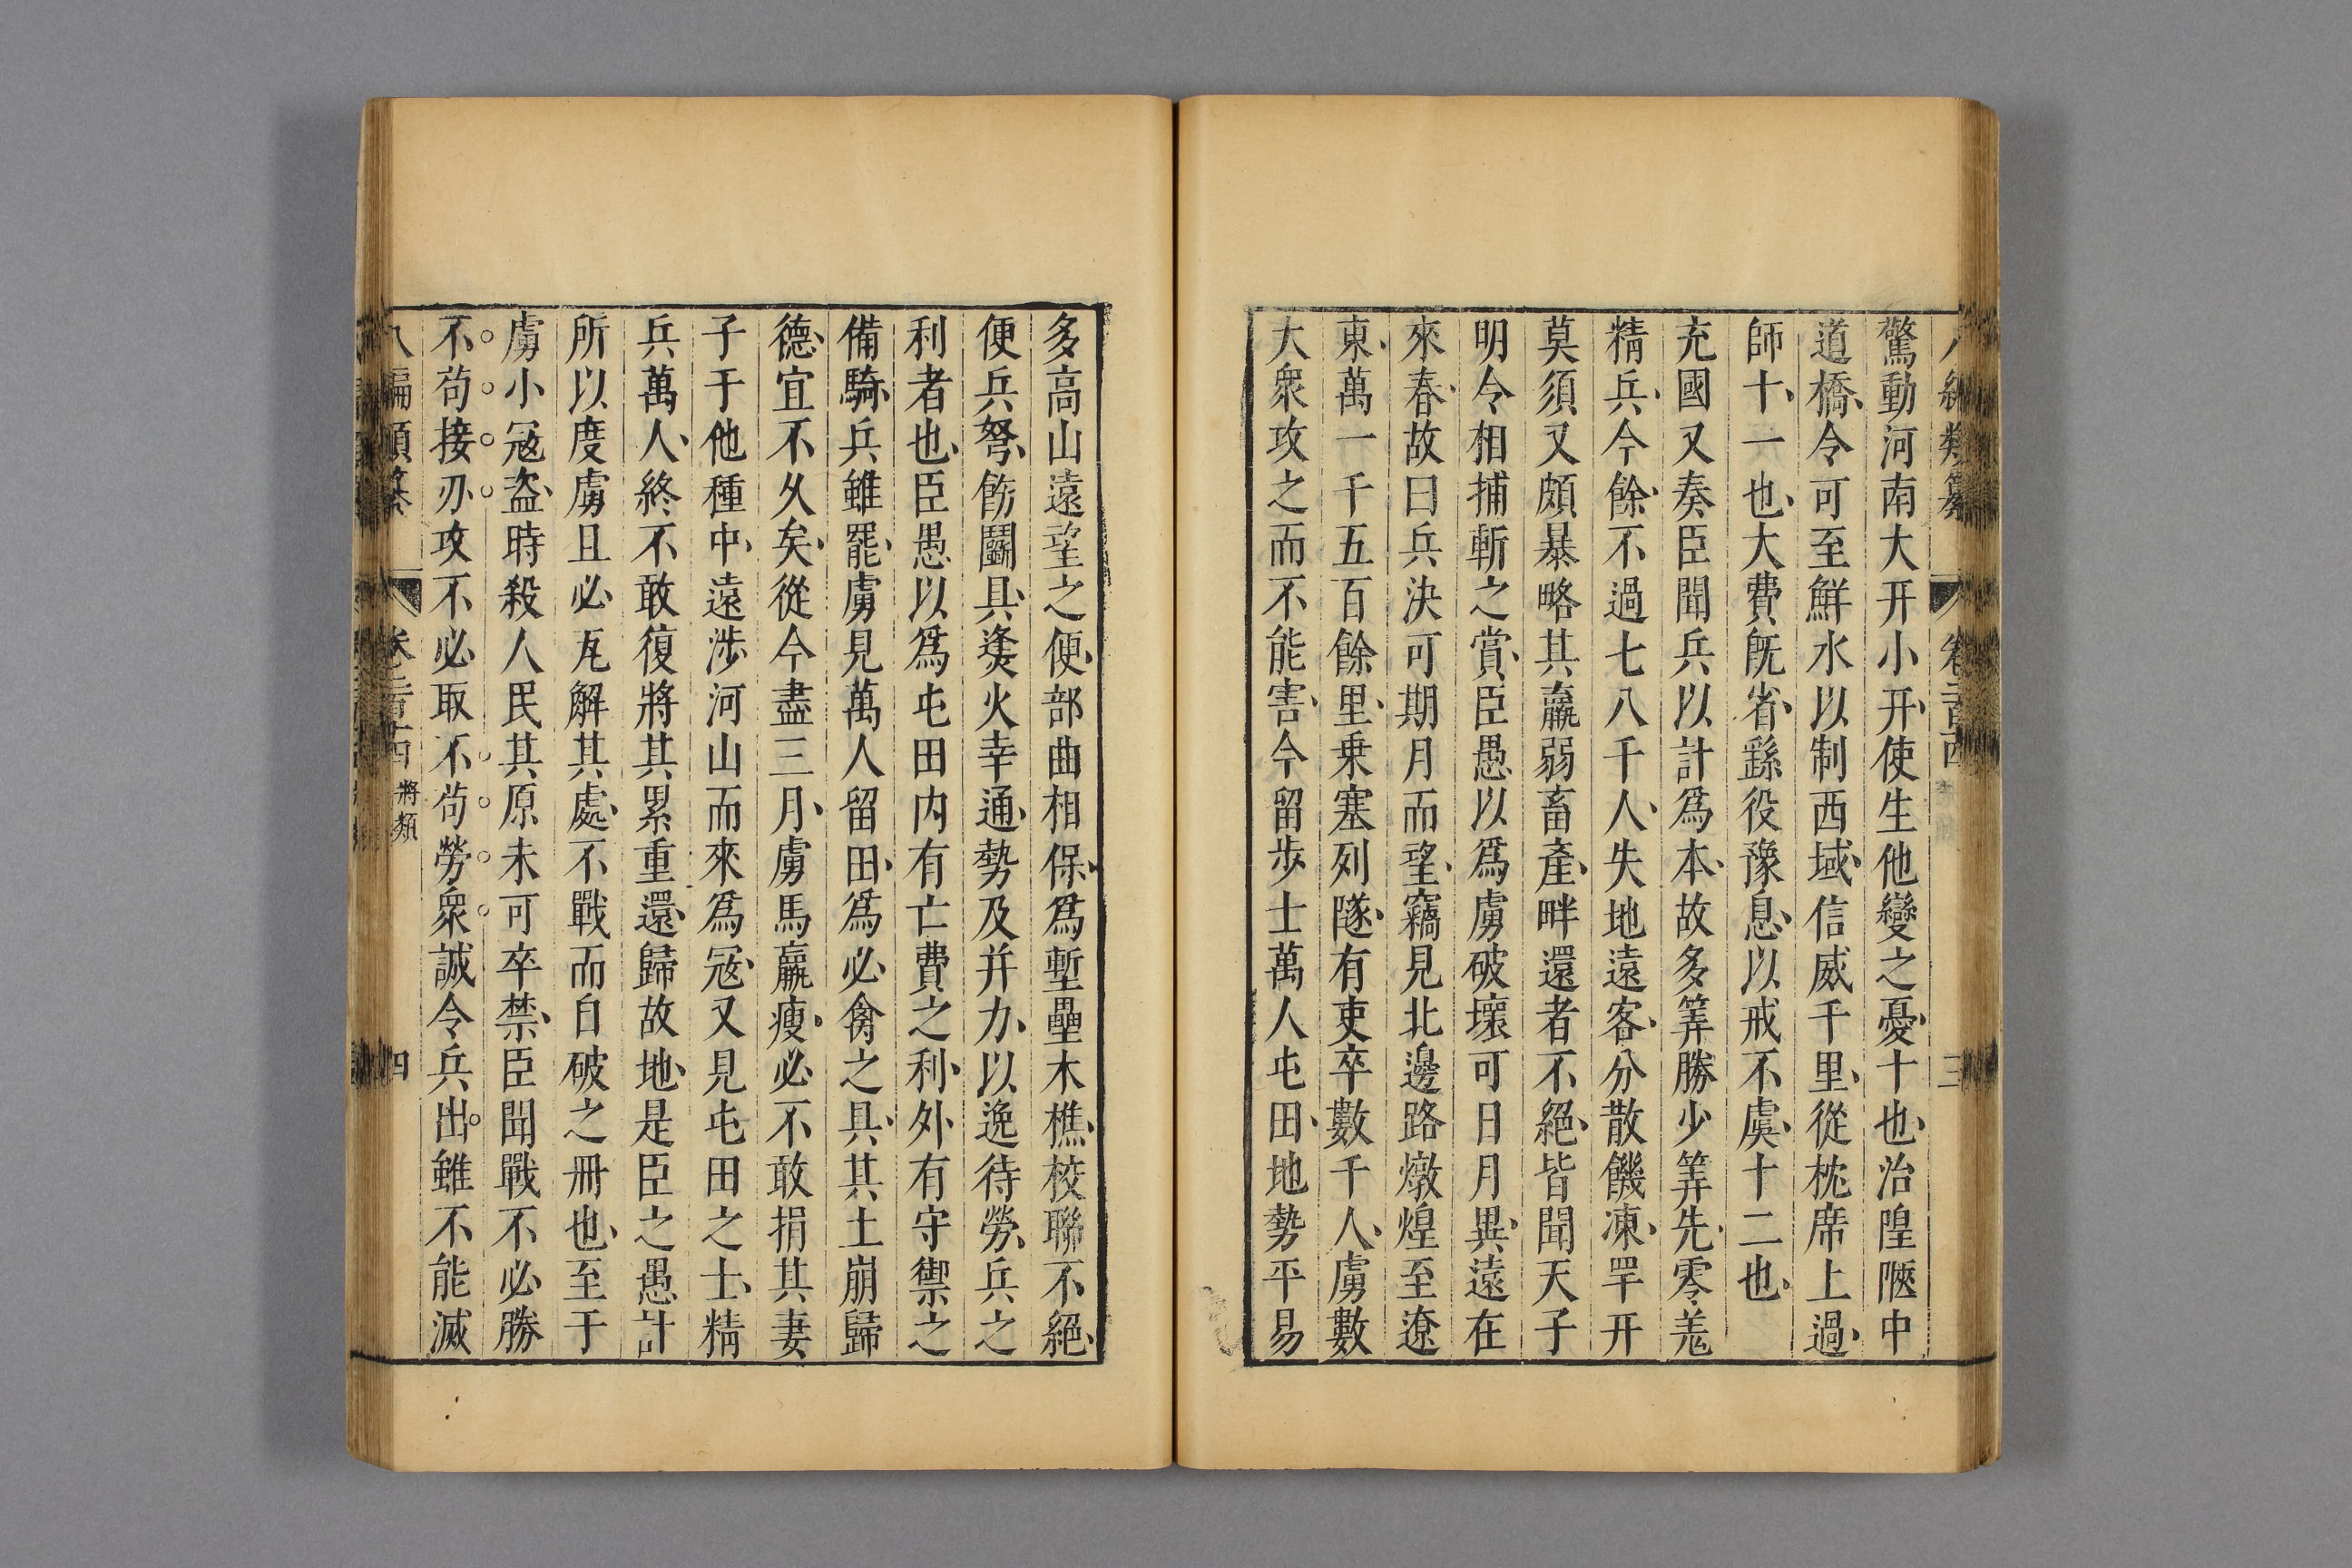 驚動河南大幵小幵使生他變之憂十也治隍陿中
道橋令可至鮮水以制西域信威千里從枕席上過
師十一也大費旣省繇役豫息以戒不虞十二也
充國又奏臣聞兵以計爲本故多筭勝少筭先零羌
精兵今餘不過七八千人失地遠客分散饑凍罕幵
莫須又頗暴略其羸弱畜產畔還者不絕皆聞天子
明令相捕斬之賞臣愚以爲虜破壞可日月異遠在
來春故曰兵決可期月而望竊見北邊路燉煌至遼
東萬一千五百餘里乗塞列隧有吏卒數千人虜數
大衆攻之而不能害今留步士萬人屯田地勢平易
多高山遠望之便部曲相保爲塹壘木樵校聯不絕
便兵弩飭鬭具逢火幸通勢及并力以逸待勞兵之
利者也臣愚以爲屯田内有亡費之利外有守禦之
備騎兵雖罷虜見萬人留田爲必禽之具其土崩歸
德宜不久矣從今盡三月虜馬羸瘦必不敢捐其妻
子于他種中遠涉河山而來爲冦又見屯田之士精
兵萬人終不敢復將其累重還歸故地是臣之愚計
所以度虜且必瓦解其處不戰而自破之冊也至于
虜小冦盜時殺人民其原未可卒禁臣聞戰不必勝
不苟接刃攻不必取不苟勞衆誠令兵出雖不能滅
八編類纂 卷二百十四 將類 四